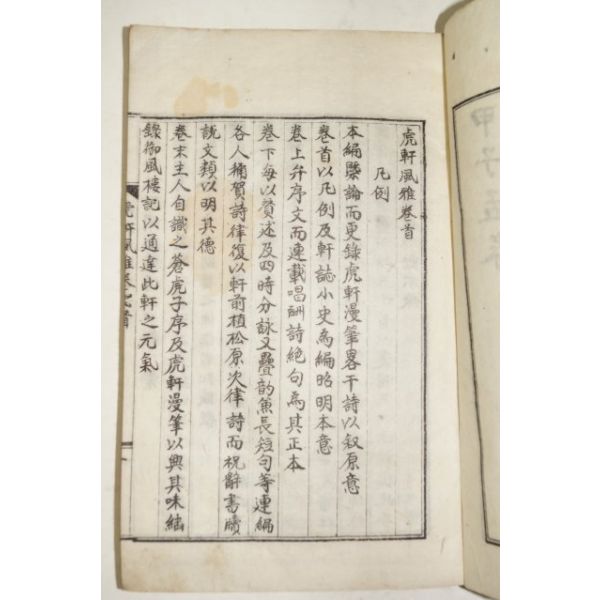 虎軒風雅卷首
凡例
本編槩論而更錄虎軒漫筆畧干詩以叙原意
卷首以凡例及軒誌小史為編昭明本意
卷上弁序文而連載唱酬詩絶句為其正本
卷下每以贊述及四時分詠又疊韵兼長短句等連編
各人稱賀詩律復以軒前植松原次律詩而祝辭書牘
説文類以明其德
卷末主人自識之蒼虎子序及虎軒漫筆以興其味紬
錄御風樓記以通達此軒之元氣
虎軒風雅卷之首
一